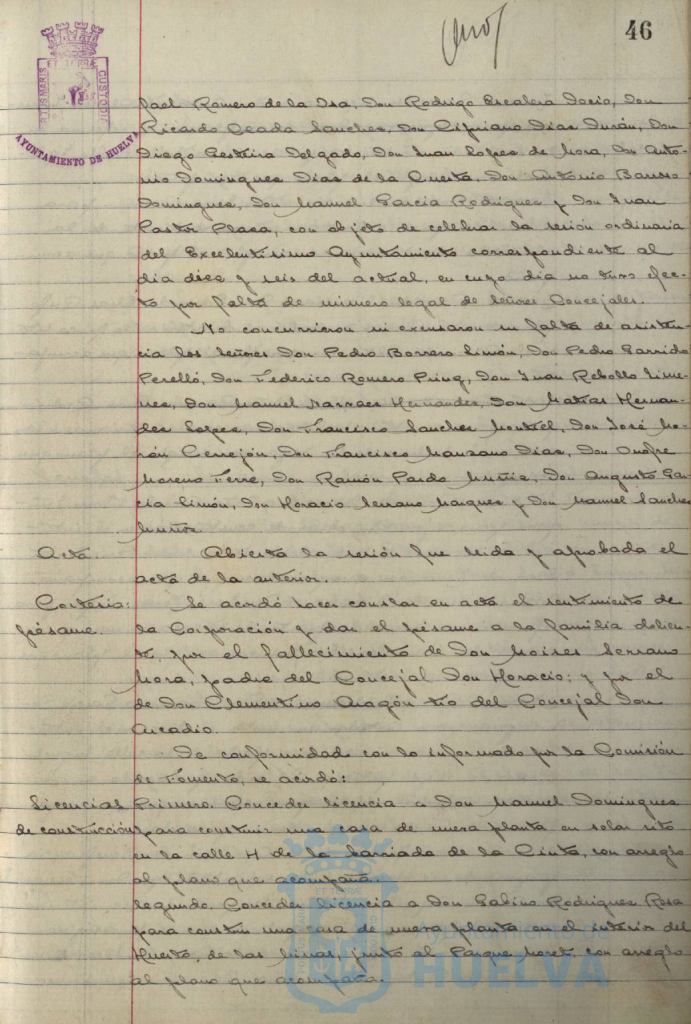 46
PORTUS MARIS ET TERRAE CUSTODIA
AYUNTAMIENTO DE HUELVA
fael Romero de la Osa, Don Rodrigo Escalera Socio, Don
Ricardo Ceada Sanchez, Don Cipriano Dias Durán, Don
Diego Delgado, Don Juan Lopez de Mora, Don Anto-
nio Dominguez Dias de la Cuesta, Don Antonio Barroso
Dominguez, Don Manuel Garcia Rodriguez y Don Juan
Pastor Plaza, con objeto de celebrar la sesión ordinaria
del Excelentisimo Ayuntamiento correspondiente al
dia diez y seis del actual, en cuyo dia no tuvo efec-
to por falta de número legal de señores Concejales.
No concurrieron ni excusaron su falta de asisten-
cia los señores Don Pedro Borrero Limón, Don Pedro Garrido
Perelló, Don Federico Romero Don Juan Rebollo Jime-
nez, Don Manuel Narvaez Hernandez, Don Matias Hernan-
dez Lopez, Don Francisco Sanchez Montiel, Don José Mo-
rán Cerrejón, Don Francisco Manzano Dias, Don Onofre
Moreno Ferre, Don Ramón Pardo Muñiz, Don Augusto Gar-
cia Limón, Don Horacio Serrano Marquez y Don Manuel Sanchez
Muñoz
Acta. Abierta la sesión fue leida y aprobada el
acta de la anterior.
Cortesia: Se acordó hacer constar en acta el sentimiento de
pésame. la Corporación y dar el pésame a la familia dolien-
te, por el fallecimiento de Don Moises Serrano
Mora, padre del Concejal Don Horacio; y por el
de Don Clementino Aragón tio del Concejal Don
Arcadio.
De conformidad con lo informado por la Comisión
de Fomento, se acordó:
Licencias Primero. Conceder licencia a Don Manuel Dominguez
de construcción para construir una casa de nueva planta en solar sito
en la calle H de la barriada de la Cinta, con arreglo
al plano que acompaña.
Segundo. Conceder licencia a Don Sabino Rodriguez Rosa
para construir una casa de nueva planta en el interior del
Huerto, de las Minas, junto al Parque Moret, con arreglo
al plano que acompaña.
Ayuntamiento de
HUELVA